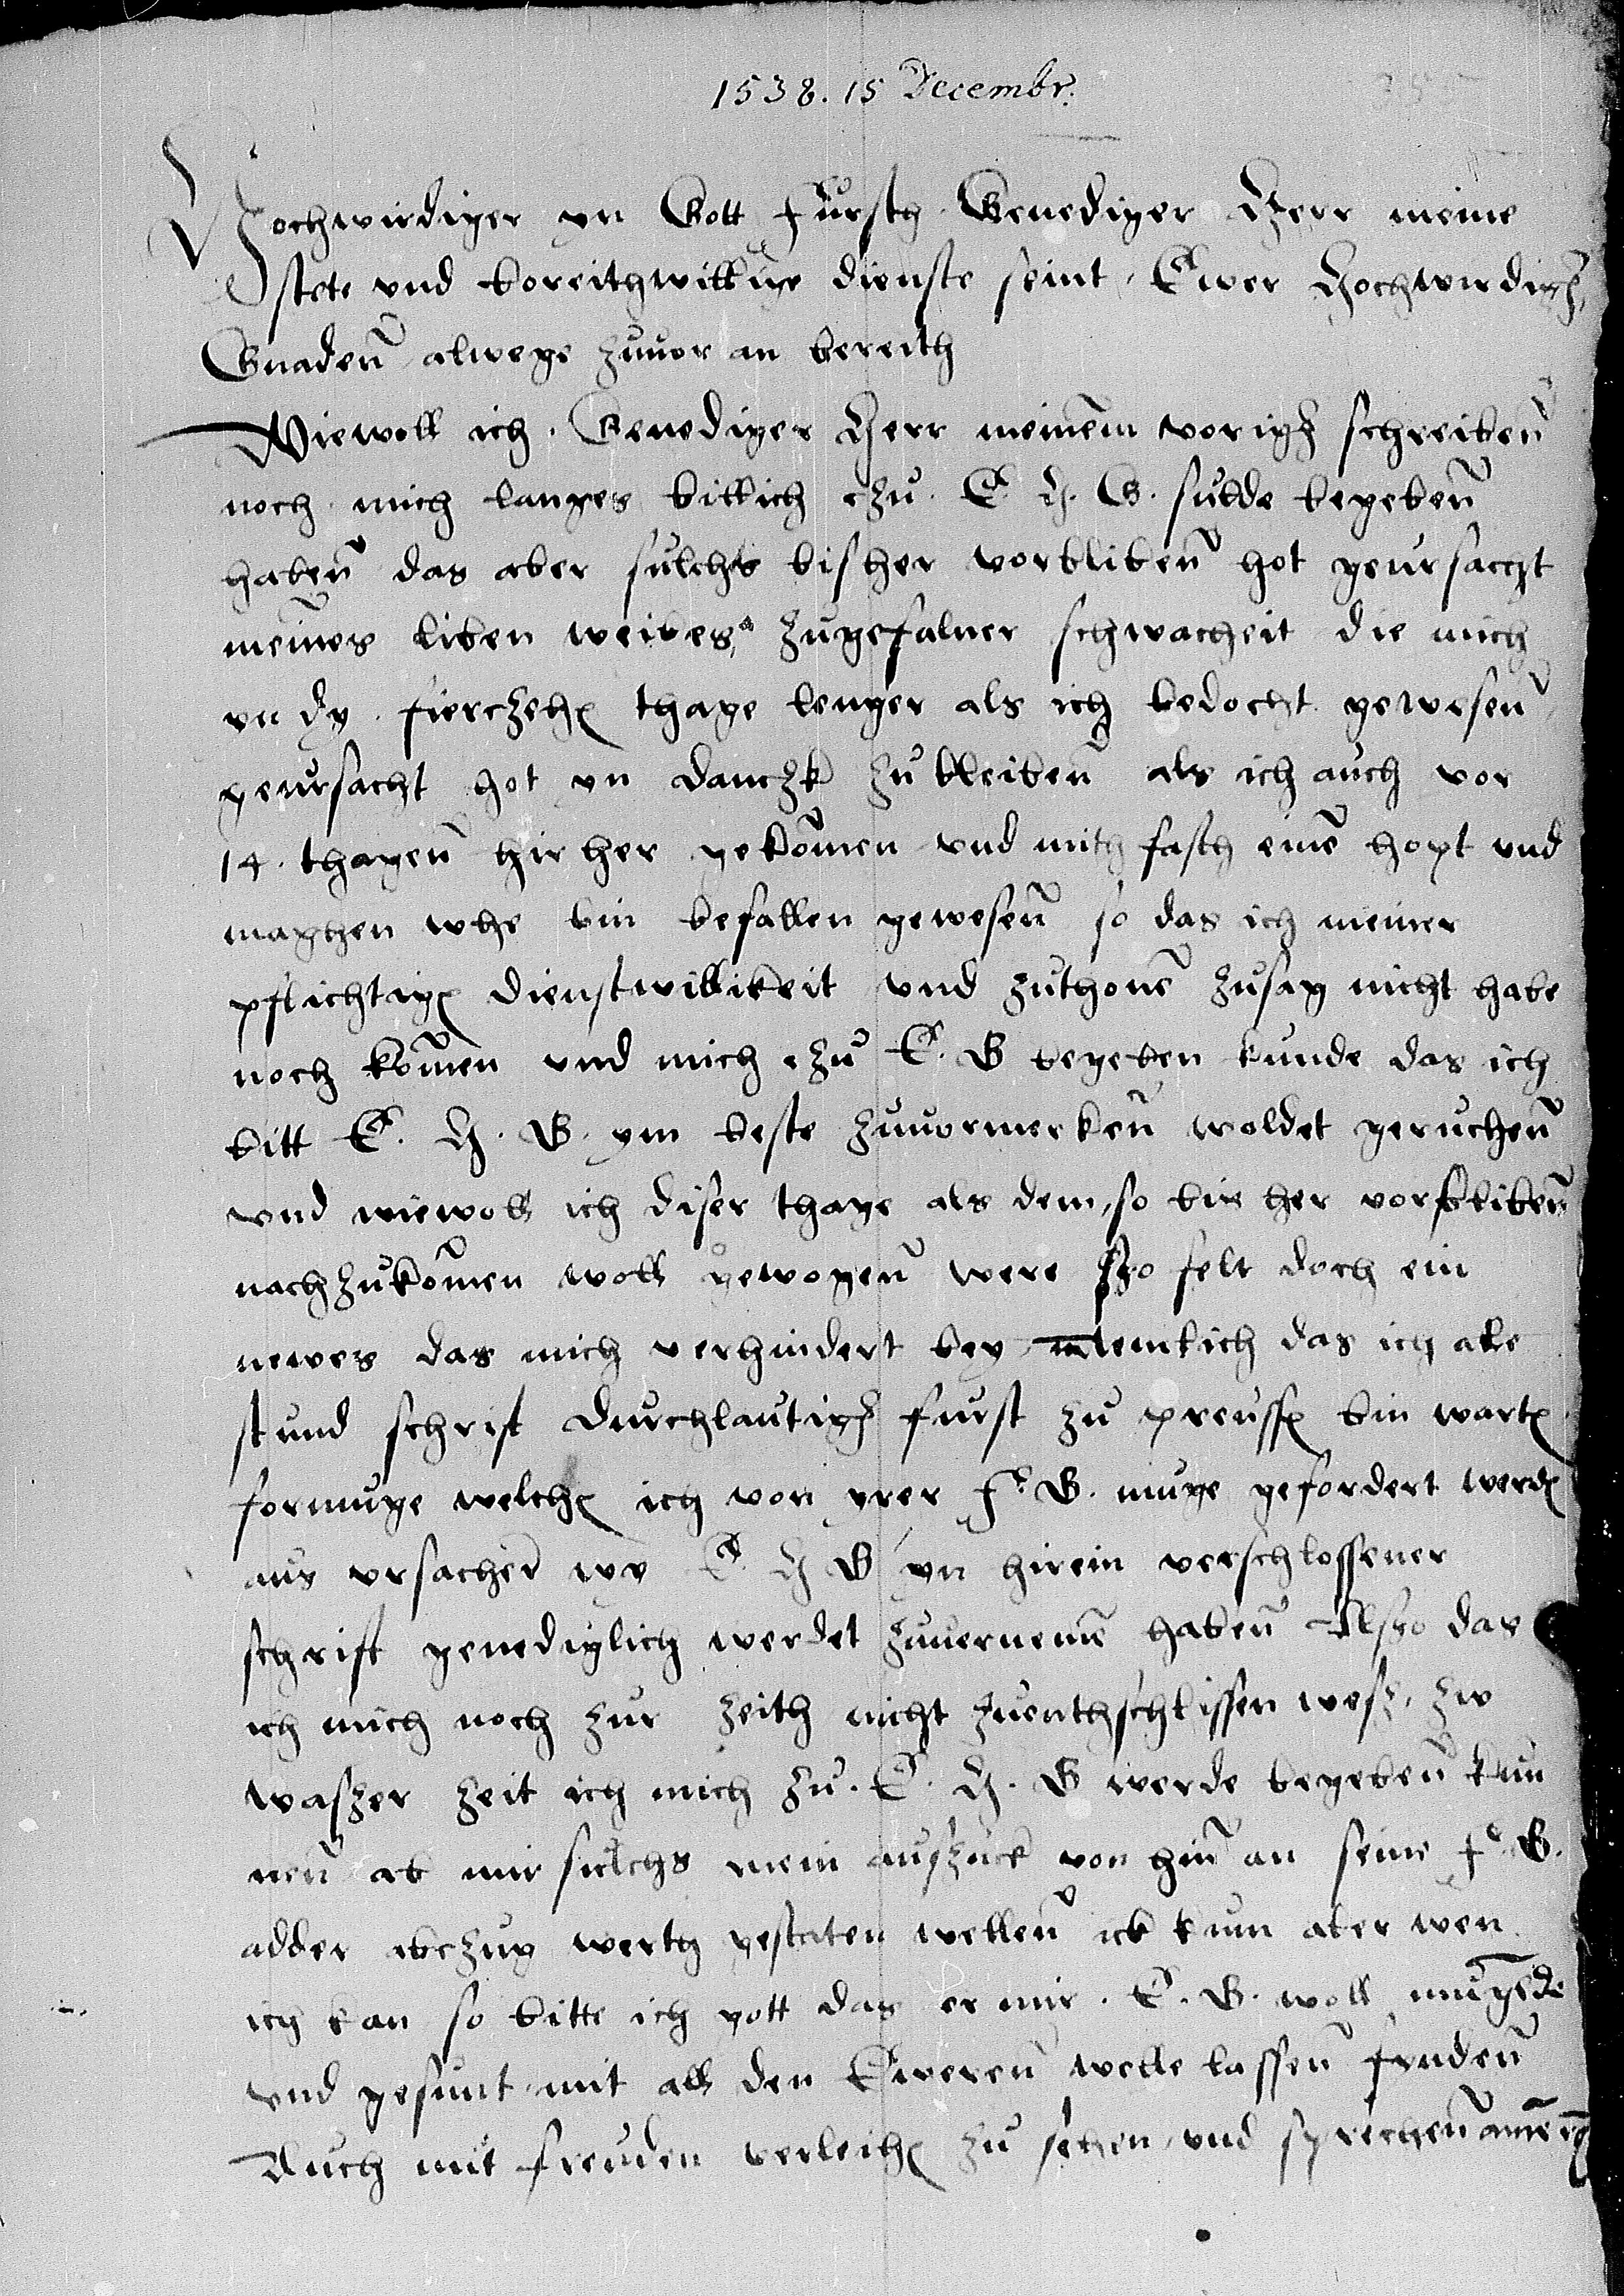 1538. 15 Decembr.
Hochwirdiger yn Gott Fursth Genediger Herr meine
stete und bereithwillige dienste seint Ewer Hochwirdigen
Gnaden alwege zuuor an bereith
Wiewoll ich Genediger Herr meinem vorigen schreiben
noch mich langes billich zu E. H. G. sulde begeben
haben das aber sulchs bisher vorbliben hot geursacht
meines liben weibes zugefalner schwacheit die mich
yn dy fierczehen thage lenger als ich bedocht gewesen
geursacht hot yn danczk zu bleiben als ich auch vor
14. thagen hir her gekomen und mith fasth eine hopt und
maghen whe bin befallen gewesen so das ich meiner
pflichtigen dienstwillikeit und zuthone zusag nicht habe
noch komen und mich zu E. G begeben kunde das ich
bitt E. H. G. ym beste zuuormerken woldet geruchen
und wiewoll ich diser thage als dem so bis her vorbliben
nachzukomen woll gewogen were szo felt doch ein
newes das mich verhindert bey nemlich das ich alle
stund schrift durchlautigen furst zu preussen bin warten
formuge welchen ich von yrer f. G. muge gefordert werden
aus ursachen wy E. H G yn hirein verschlossener
schrift genediglich werdet zuuerneme haben Alszo das
ich mich noch zur zeith nicht zuenthschlissen wesz, zw
waszer zeit ich mich zu E. H. G werde begeben kun
nen ab mir sulchs mein auszuck von hin an seine f. G.
adder abzug werth gestaten wellen ich kum aber wen
ich kan so bitte ich gott das er mir E. G. woll mugende
und gesunt mit all den Eweren welle lassen finden
Auch mit freuden verleihen zu sehen und sprechen amen